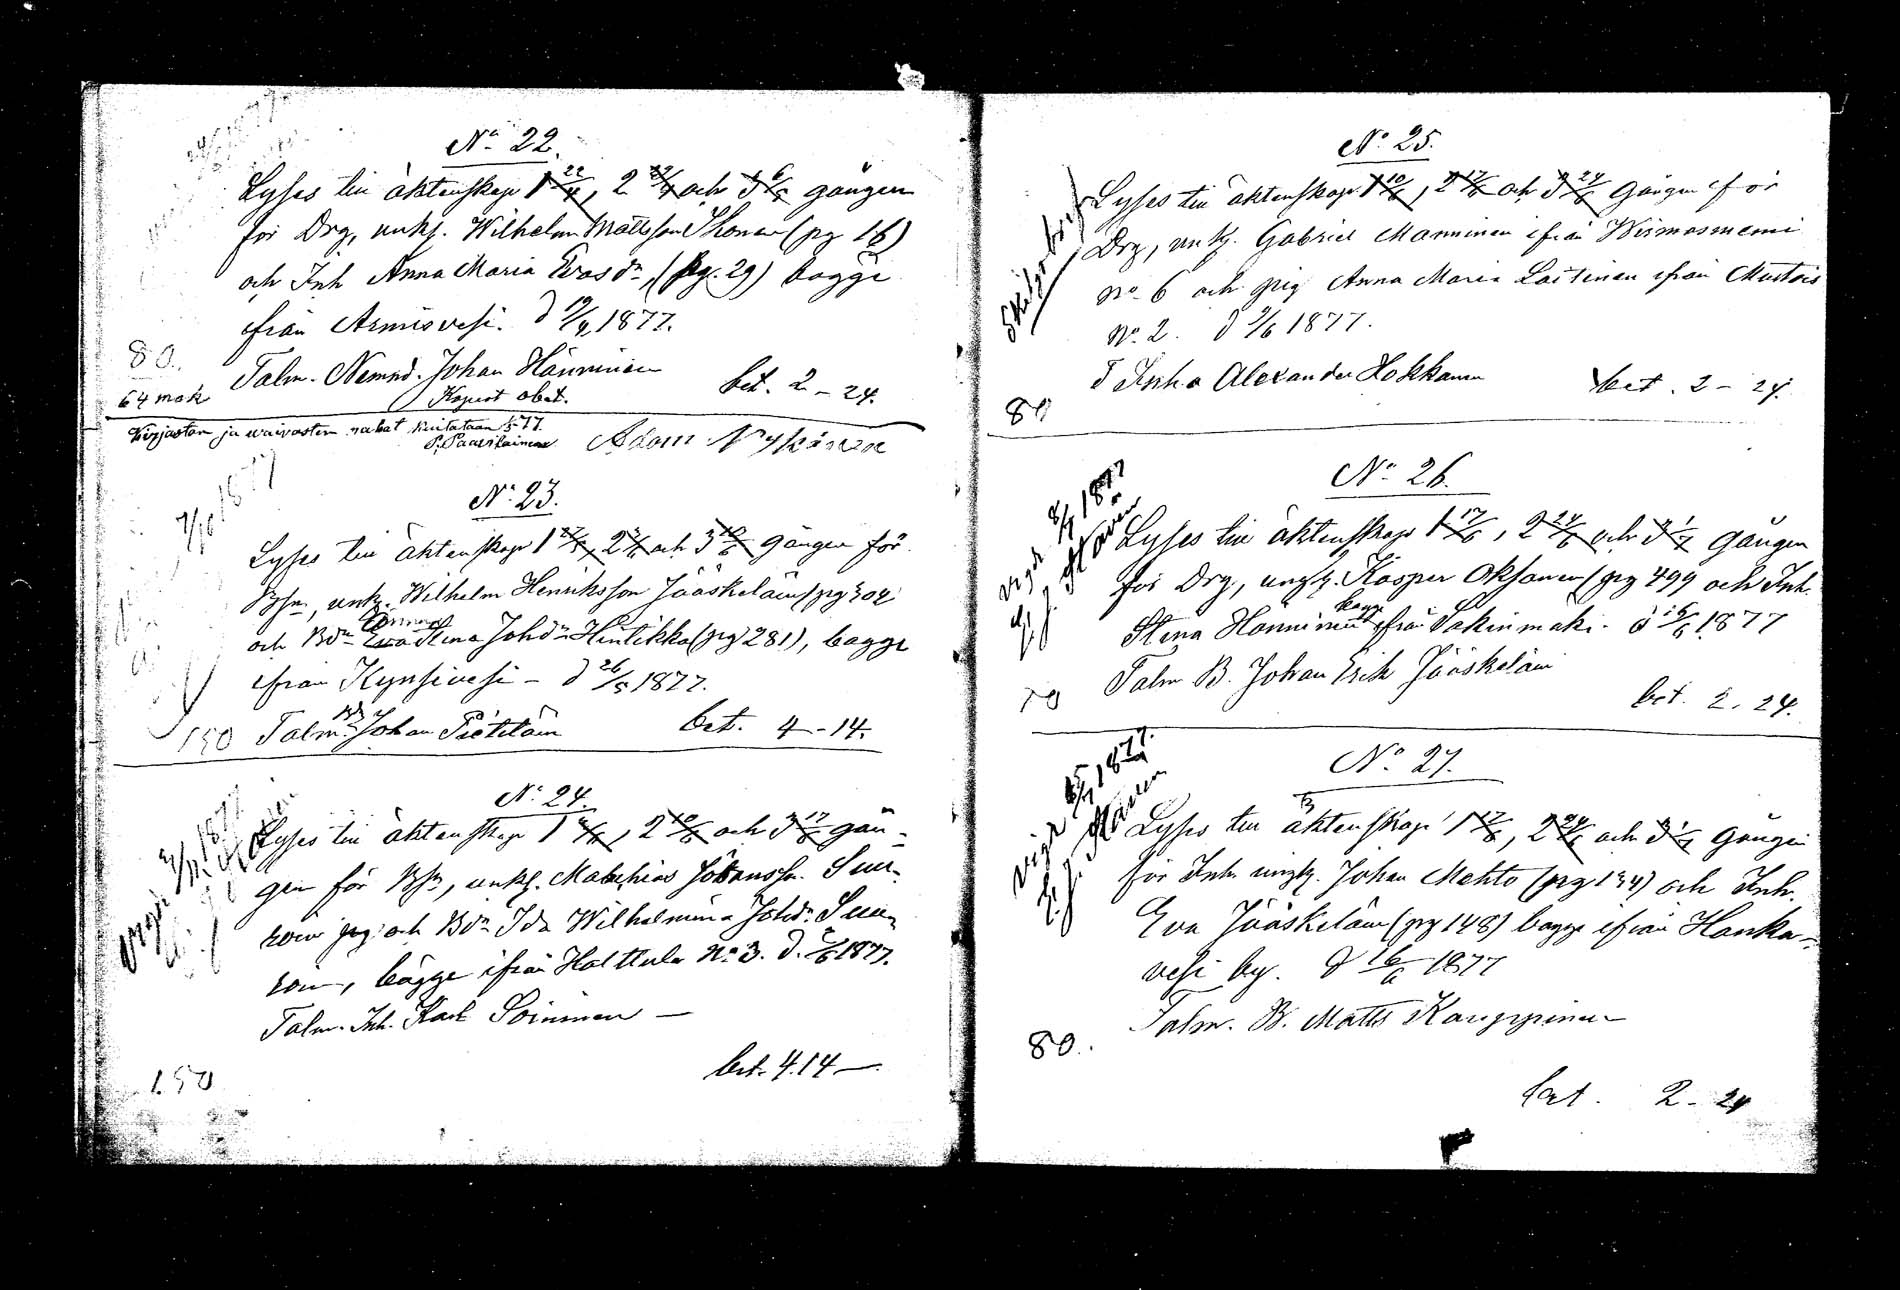 No 22.
Lyses till äktenskap 1 22/4, 2 29/4 och 3 6/5 gången
för Drg, unkf. Wilhelm Mattsson Ikonen (pg 16)
och Inh Anna Maria Evasdr, (pg. 29) bagge
ifrån Armisvesi. d 19/4 1877.
80.
Talm. Nemnd. Johan Hänninen
64 mak
Kopist abet.
bet. 2 - 24.
Kirjaston ja waivasten rahat kuitataan 77.
P. Paavilainen
Adam Nykänen
7/10 1877
No 23.
Lyses till äktenskap 1 27/5, 2 3/6 och 3 10/6 gången för
Bsn, unk. Wilhelm Henriksson Jääskeläin (pg 302
och Bdr Eva Stina Johdr Hintikka (pg 281), bagge
ifrån Kynsivesi - d 26/5 1877.
150
Talm. Johan Pietiläin
bet. 4 - 14.
No 24.
Lyses till äktenskap 1 3/6, 2 10/6 och 3 17/6 gån-
gen för Bsn, unkf. Mathias Johansson
och Bdr Ida Wilhelmina Johdr
bägge ifrån Halttula No 3. d. 2/6 1877.
Talm. Inh. Karl Soininen -
bet. 4.14 -
1.50
No 25.
Lyses till äktenskap 1 10/6, 2 17/6 och 3 24/6 gången för
Drg, unkf. Gabriel Manninen ifrån Wirmasniemi
No 6 och pig Anna Maria Laitinen ifrån Mustois
No 2. d 9/6 1877.
T Inh Alexander Hokkanen
bet. 2 - 24.
80
Vigde 8/7 1877
No 26.
Lyses till äktenskap 1 17/6, 2 24/6 och 3 1/7 gången
för Drg, Kasper Oksanen (pg 499 och Inh.
Stina Hänninen bagge ifrån Lakinmäki. d 16/6 1877
Talm B. Johan Erik Jääskeläin
70
bet. 2. 24.
vigde 1877.
No 27.
Lyses till äktenskap 1 17/6, 2 24/6 och 3 1/7 gången
för Inh. Johan Mehto (pg 134) och Inh.
Eva Jääskeläin (pg 148) bagge ifrån Hanka-
vesi by. d 16/6 1877
Talm. B. Matts Karppinen
80.
bet. 2 - 24